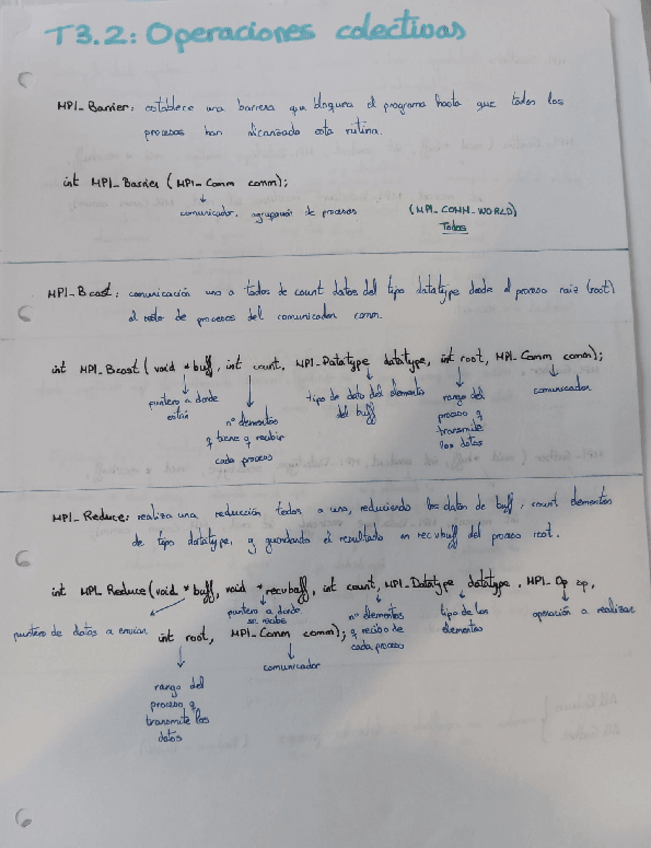 T3.2: Operaciones colectivas
MPI_Barrier: establece una barrera que bloquea el programa hasta que todos los
procesos han alcanzado esta rutina.
int MPI_Barrier (MPI_Comm comm);
comunicador, agrupación de procesos (MPI_COMM_WORLD)
Todos
MPI_Bcast: comunicación uno a todos de count datos del tipo datatype desde el proceso raiz (root)
al resto de procesos del comunicador comm.
int MPI_Bcast (void *buff, int count, MPI_Datatype datatype, int root, MPI_Comm comm);
puntero a donde
están
nº elementos
q tiene q recibir
cada proceso
tipo de dato del elemento
del buff
rango del
proceso q
transmite
los datos
comunicador
MPI_Reduce: realiza una reducción todos a uno, reduciendo los datos de buff, count elementos
de tipo datatype, y guardando el resultado en recvbuff del proceso root.
int MPI_Reduce (void *buff, void *recvbuff, int count, MPI_Datatype datatype, MPI_Op op,
puntero de datos a enviar
puntero a donde
se recibe
nº elementos
q recibo de
cada proceso
tipo de los
elementos
operación a realizar
int root, MPI_Comm comm);
comunicador
rango del
proceso q
transmite los
datos